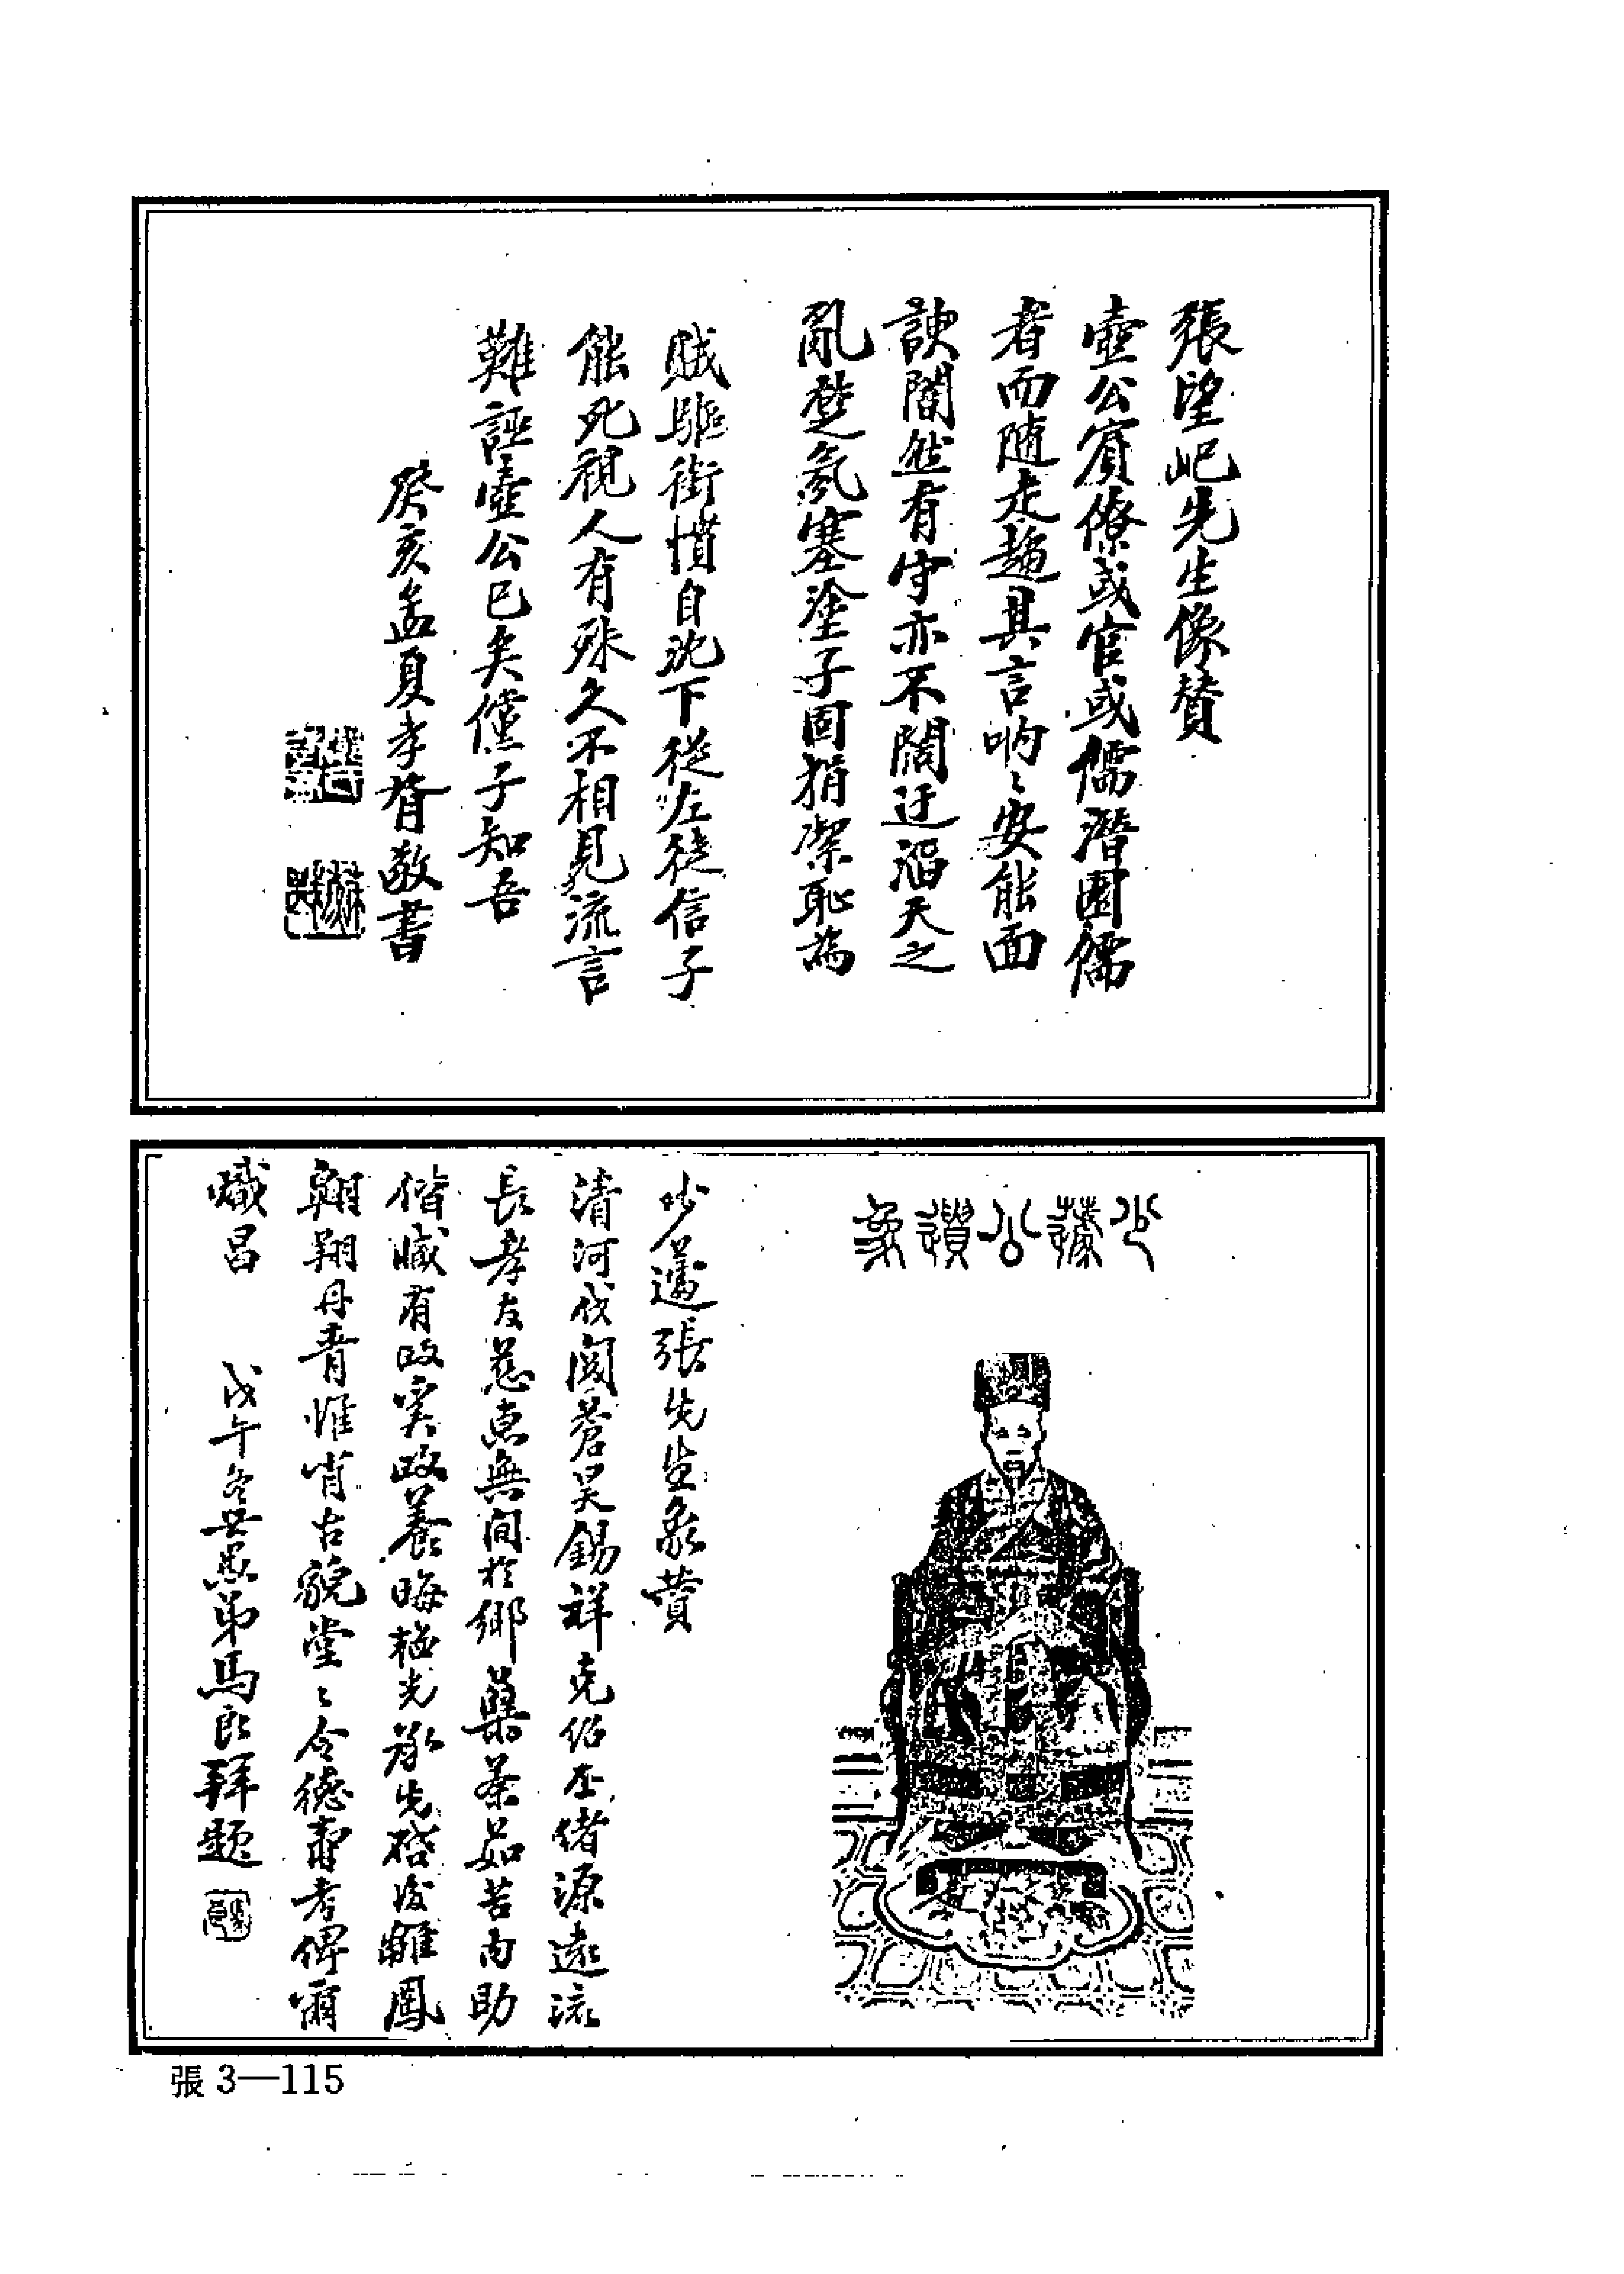 張望屺先生像贊
壺公賓僚或官或儒潛園儒
者而随走趨其言呐〻安能面
諛闇然有守亦不闊迂滔天之
亂楚氛塞塗子固狷潔恥為
賊驅街憤自沈下從左徒信子
能死視人有殊久不相見流言
難誣壺公已矣儻子知吾
癸亥孟夏孝胥敬書
少蘧公讚象
少蘧張先生象贊
清河伐閱蒼昊錫祥克紹丕緒源遠流
長孝友慈惠無間於鄉蘖茶茹苦內助
偕臧有政實政養晦極光承先啓後雛鳳
翱翔丹青惟肖古貌堂〻令德壽考俾爾
熾昌
戊午冬世愚弟馬良拜題
張3—115